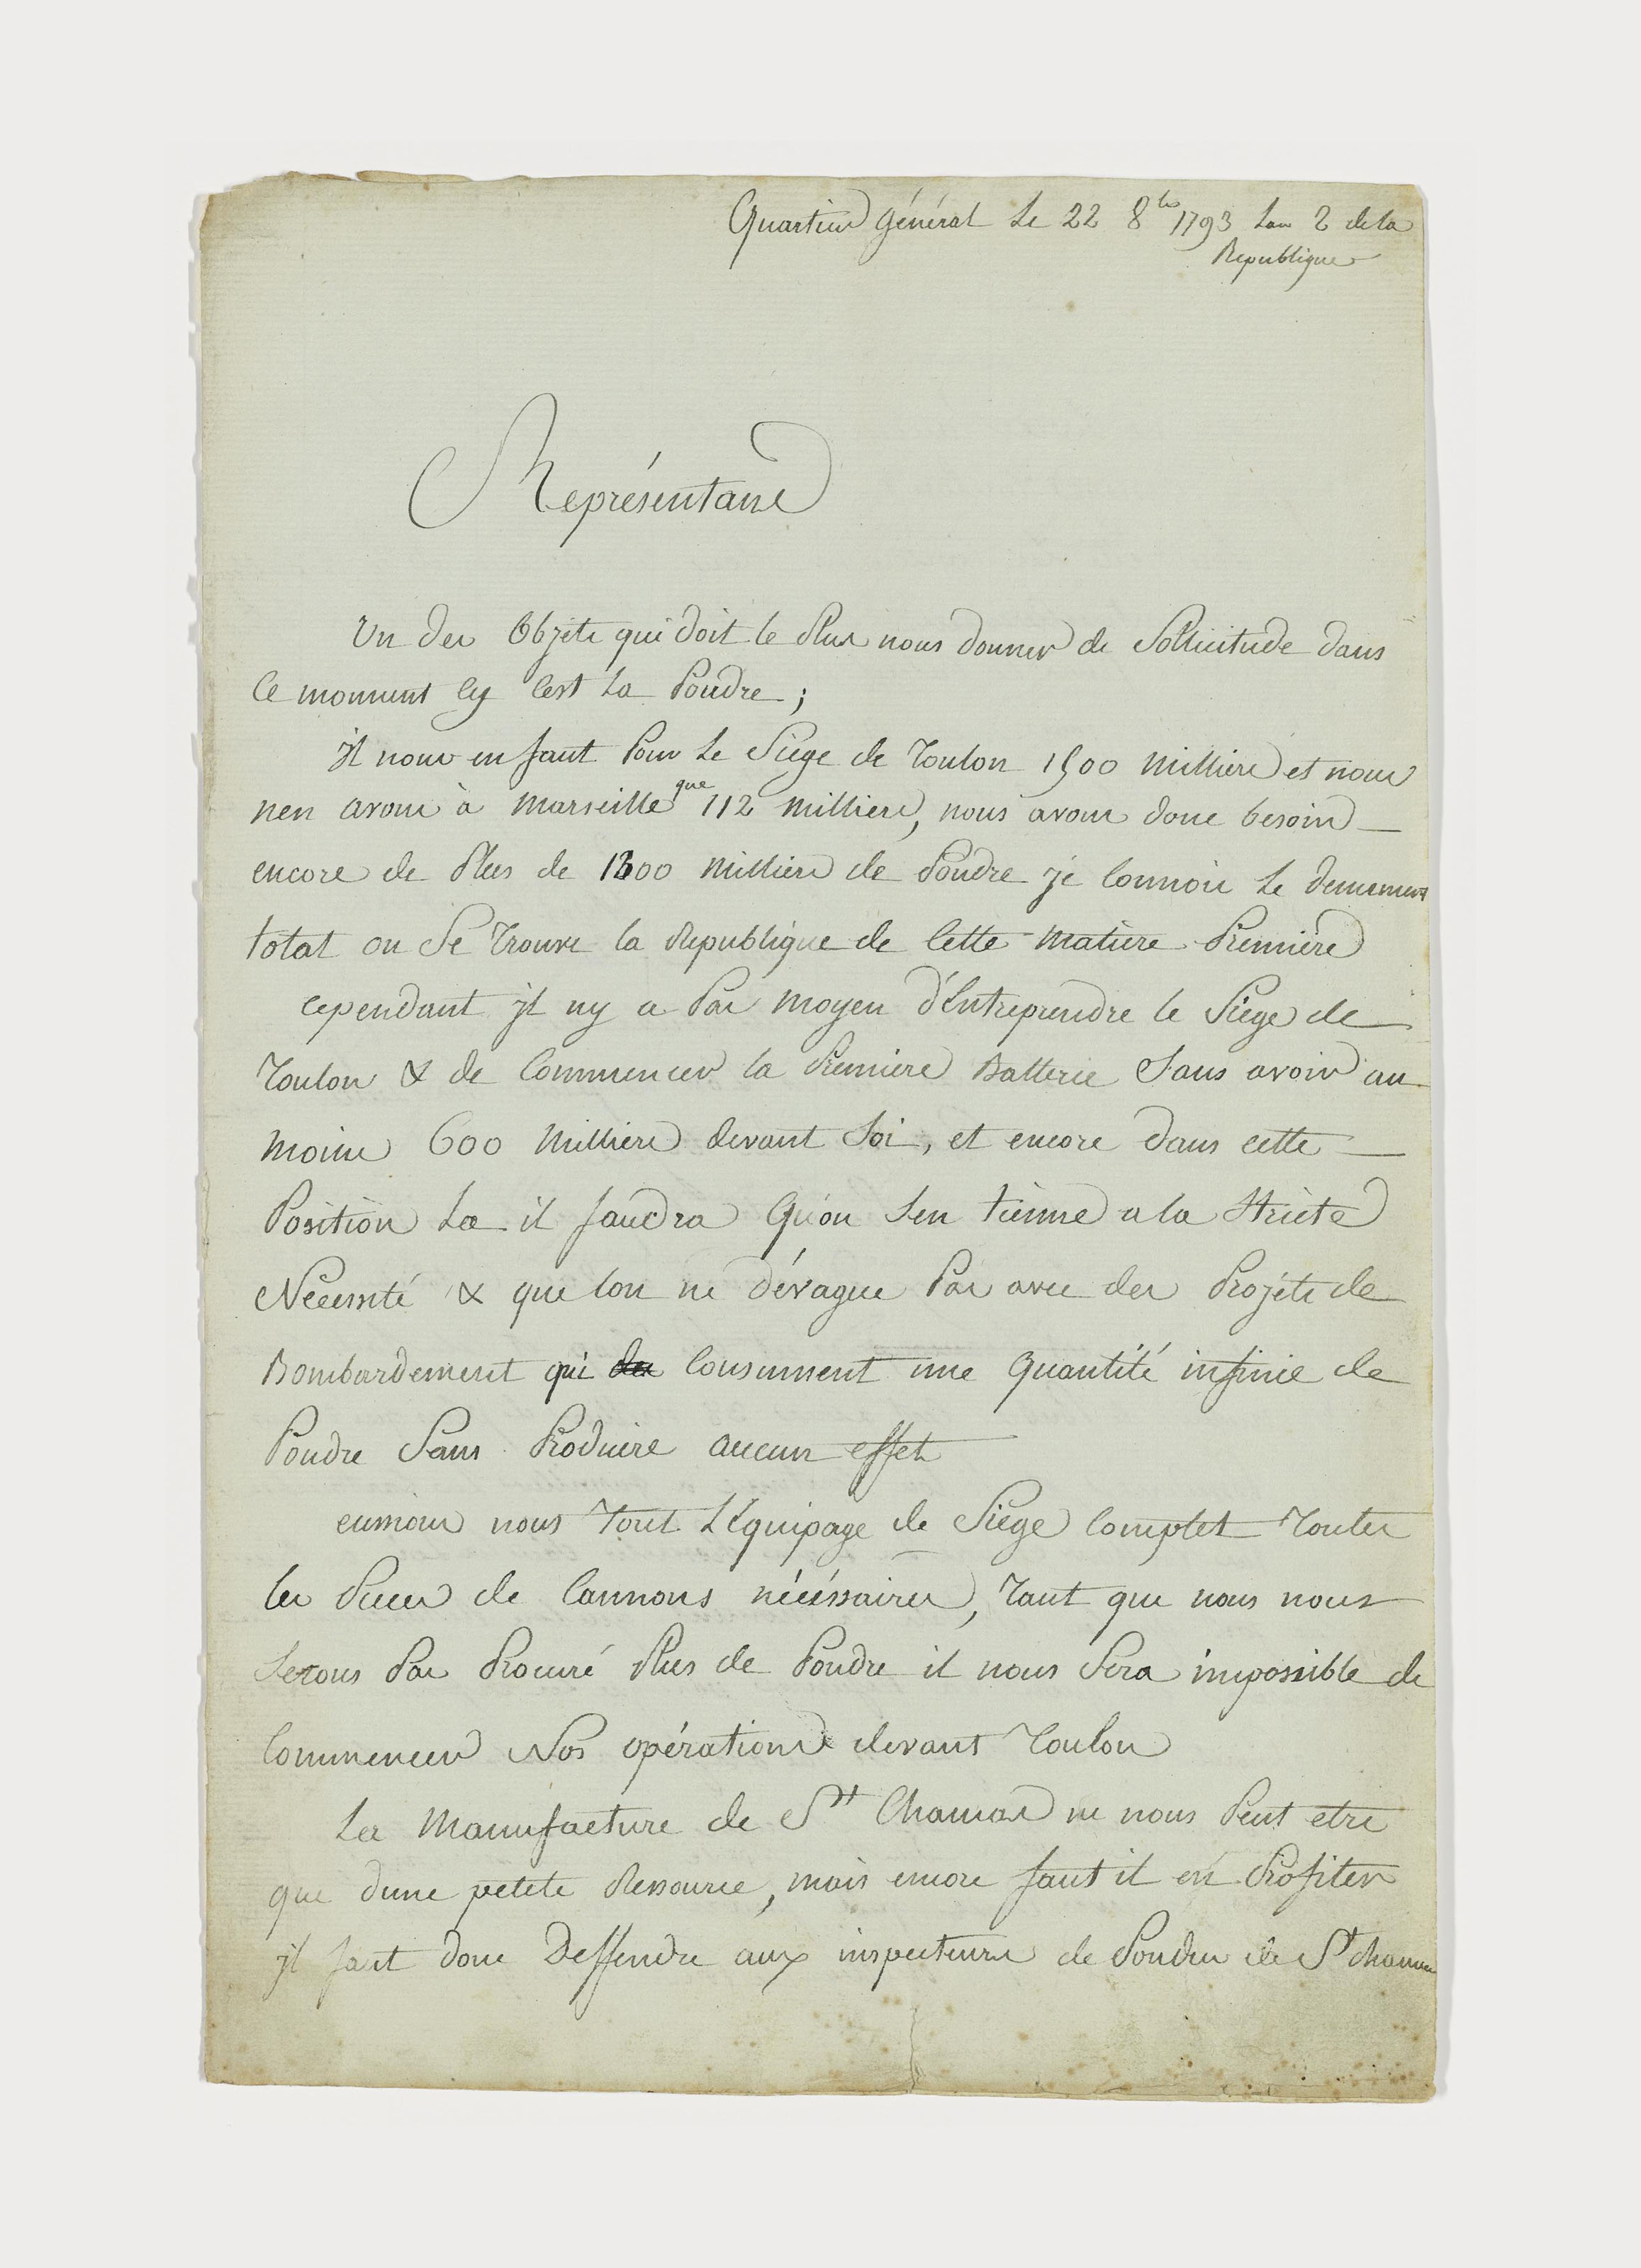 Quartier général le 22 8bre 1793 lan 2 de la
Republique
Représentans
Un des Objets qui doit le Plus nous donner de Sollicitude dans
Ce moment Cy Cest la Poudre ;
il nous en faut Pour le Siege de Toulon 1500 milliers et nous
nen avons à marseille que 112 milliers, nous avons donc besoin
encore de Plus de 1300 milliers de Poudre je Connois le denument
total ou Se Trouve la Republique de Cette matière Première
cependant il ny a Pas moyen d'Entreprendre le Siege de
Toulon & de Commencer la Premiere Batterie Sans avoir au
moins 600 milliers devant Soi, et encore dans cette
Position La il faudra Qu'on Sen tienne a la Stricte
Nécessité & que lon ne dévague Pas avec des Projets de
Bombardement qui des Consument une Quantité infinie de
Poudre Sans Produire aucun effet
eussions nous Tout L'Equipage de Siege Complet Toutes
les Pieces de Cannons nécéssaires, Tant que nous nous
Serons Pas Procuré Plus de Poudre il nous Sera impossible de
Commencer Nos opérations devant Toulon
La Manufacture de St Chamas ne nous Peut etre
que dune petite Ressource, mais encore faut il en Profiter
il faut donc Deffendre aux inspecteurs de Poudres de St Chamas